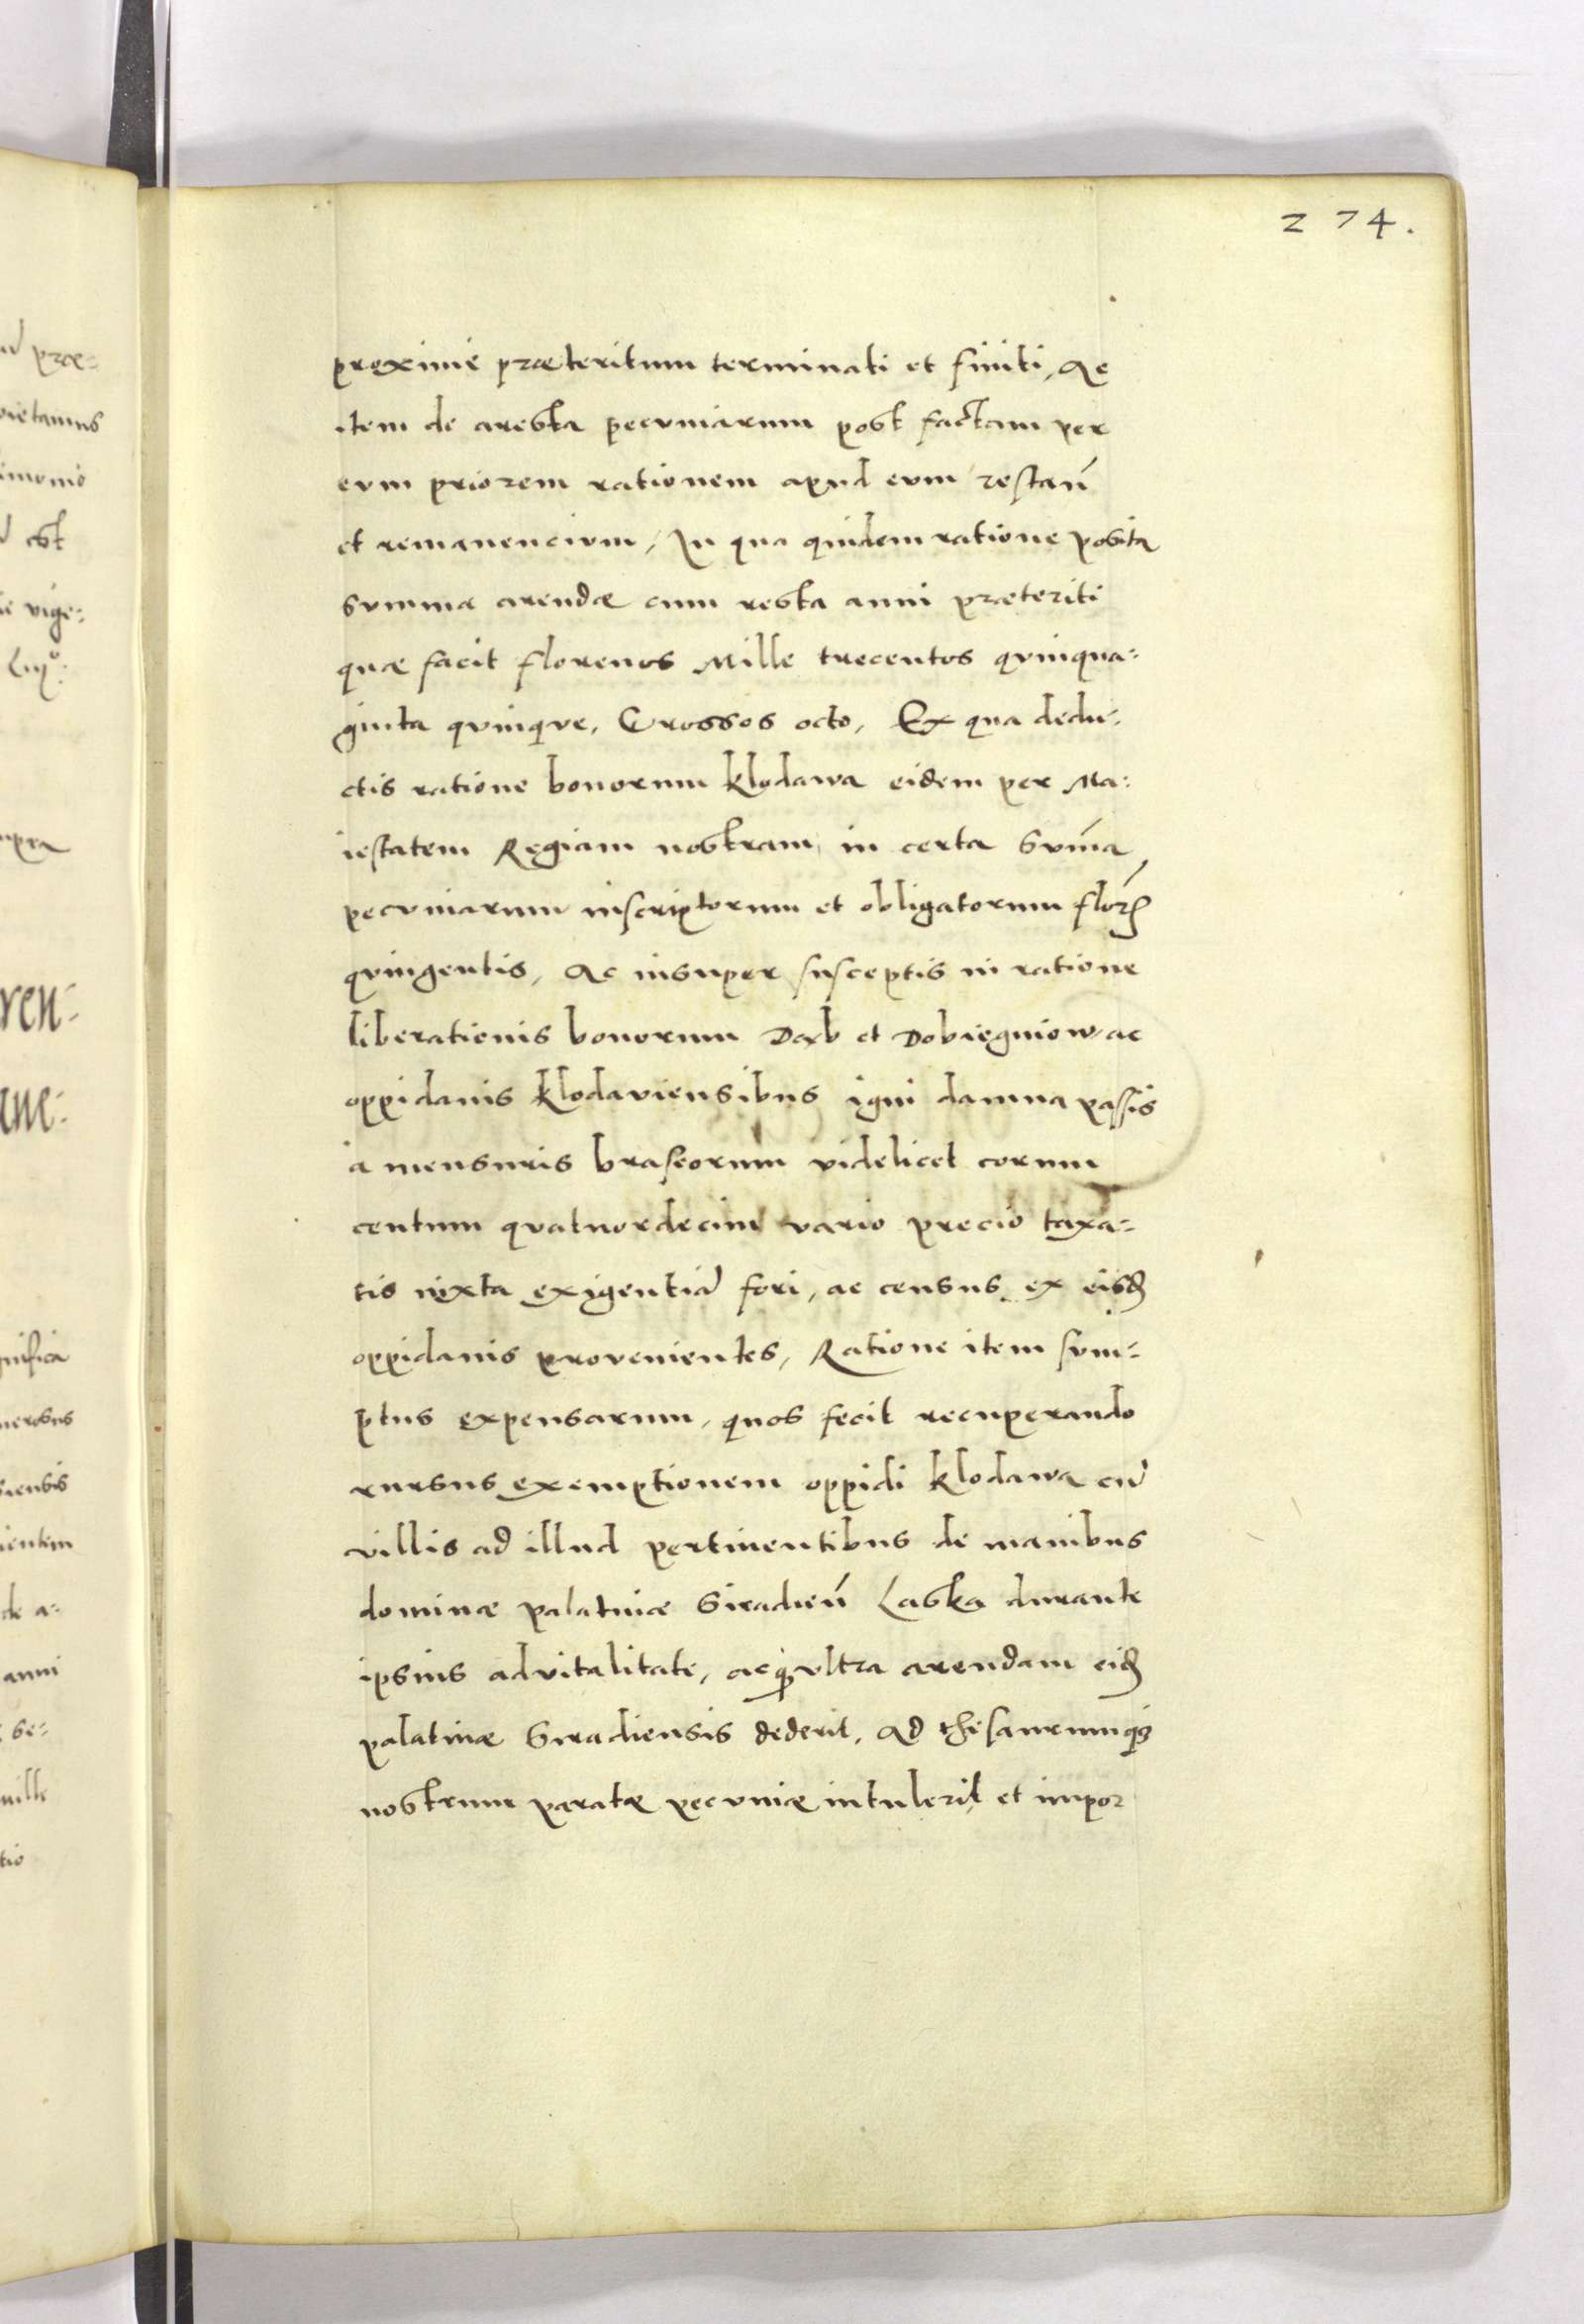 274.
proxime præteritum terminati et finiti, Ac
item de aresta pecuniarum post factam per
eum priorem rationem apud eum restañ
et remanencium, In qua quidem ratione posita
summa arendæ cum resta anni præteriti
quæ facit florenos Mille trecentos quinqua-
ginta quinque, Grossos octo, Ex qua dedu-
ctis ratione bonorum Klodawa eidem per Ma-
iestatem Regiam nostram in certa Sum̃a
pecuniarum inscriptorum et obligatorum florͤ
quingentis, Ac insuper susceptis in ratione
liberationis bonorum Dąb et Dobiegniow ac
oppidanis Klodaviensibus igni damna passis
a mensuris braseorum videlicet eorum
centum quatuordecim vario precio taxa-
tis iuxta exigentiã fori, ac census ex eisdͤ
oppidanis provenientes, Ratione item sum-
ptus expensarum, quos fecit recuperando
rursus exemptionem oppidi Klodawa cũ
villis ad illud pertinentibus de manibus
dominæ palatinæ Siradień Laska durante
ipsius advitalitate, acq; ultra arendam eidͤ
palatinæ Siradiensis dederit, Ad thesaurumq;
nostrum paratæ pecuniæ intulerit et impor
præ-
est
vige-
ren-
ane-
de a-
anni
se-
mille
tio